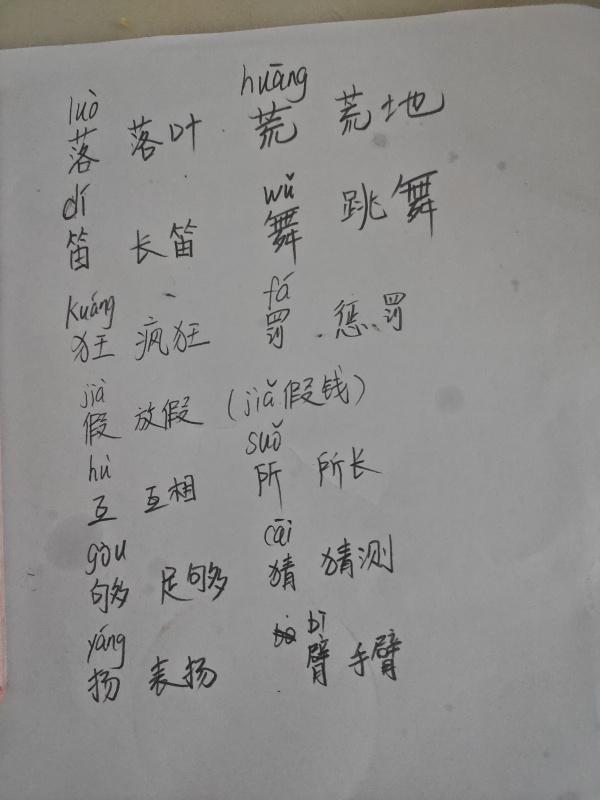 luò huāng
落 落叶 荒 荒地
dí wǔ
笛 长笛 舞 跳舞
kuáng fá
狂 疯狂 罚 惩罚
jià
假 放假 (jiǎ假钱)
hù suǒ
互 互相 所 所长
gòu cāi
够 足够 猜 猜测
yáng bì
扬 表扬 臂 手臂